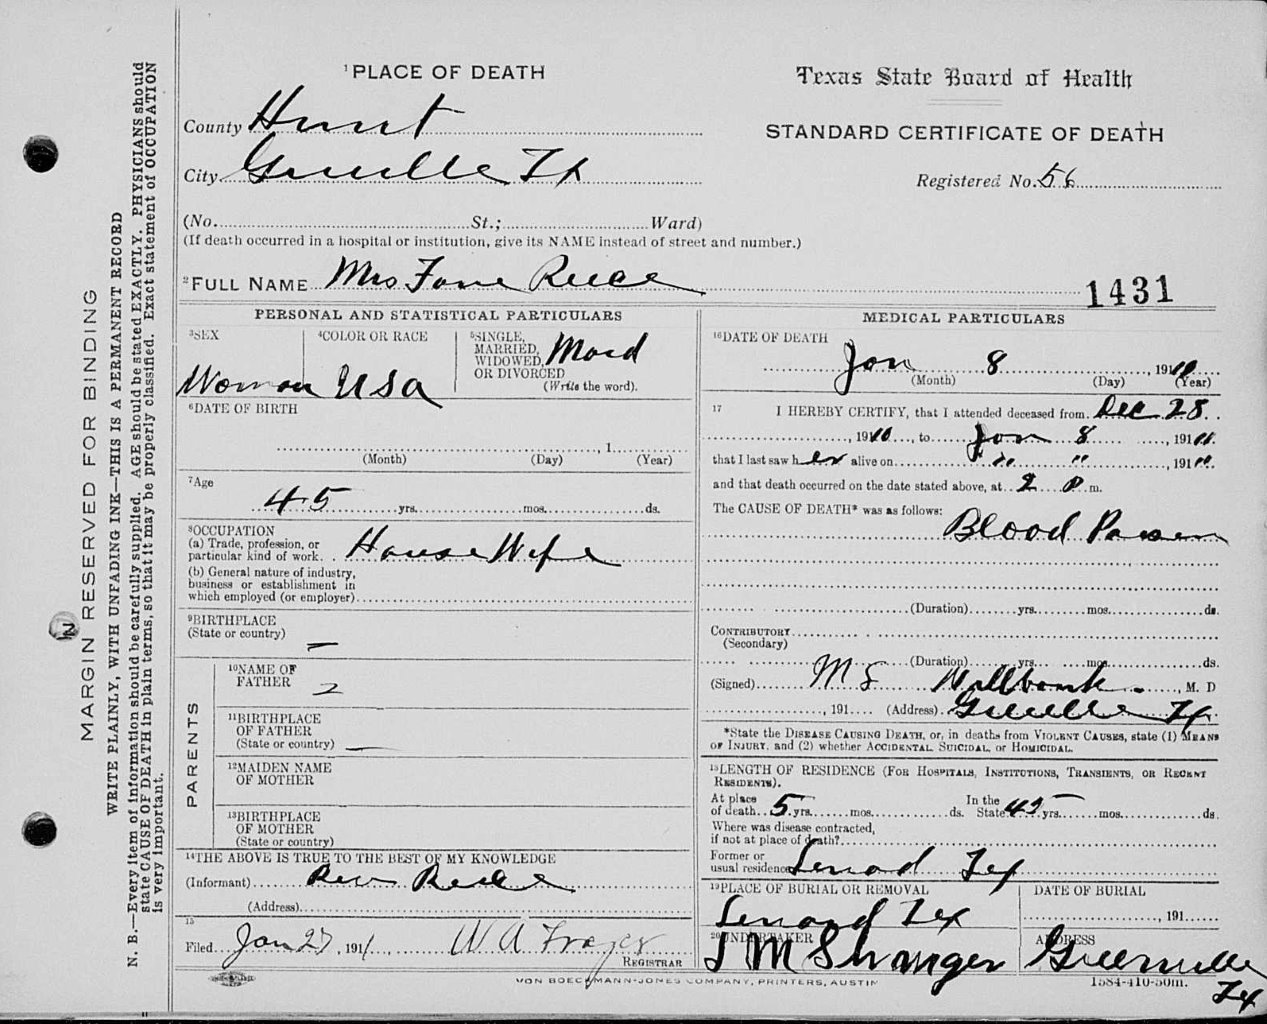 ¹PLACE OF DEATH
Texas State Board of Health
County Hunt
STANDARD CERTIFICATE OF DEATH
City Greenville Tx
Registered No. 56
(No. St.; Ward)
(If death occurred in a hospital or institution, give its NAME instead of street and number.)
²FULL NAME Mrs Fanie Reece
1431
PERSONAL AND STATISTICAL PARTICULARS
³SEX
Woman
⁴COLOR OR RACE
USA
⁵SINGLE,
MARRIED,
WIDOWED,
OR DIVORCED
(Write the word).
Mard
⁶DATE OF BIRTH
, 1
(Month) (Day) (Year)
⁷Age
45 yrs. mos. ds.
⁸OCCUPATION
(a) Trade, profession, or
particular kind of work. House Wife
(b) General nature of industry,
business or establishment in
which employed (or employer)
⁹BIRTHPLACE
(State or country)
PARENTS
¹⁰NAME OF
FATHER
¹¹BIRTHPLACE
OF FATHER
(State or country)
¹²MAIDEN NAME
OF MOTHER
¹³BIRTHPLACE
OF MOTHER
(State or country)
¹⁴THE ABOVE IS TRUE TO THE BEST OF MY KNOWLEDGE
(Informant) Rev Reece
(Address)
15
Filed Jan 27, 1911 W A Frazer
REGISTRAR
MEDICAL PARTICULARS
¹⁶DATE OF DEATH
Jan 8, 191
(Month) (Day) (Year)
17 I HEREBY CERTIFY, that I attended deceased from Dec 28
, 1910, to Jan 8, 191
that I last saw her alive on " ", 191
and that death occurred on the date stated above, at 2 P m.
The CAUSE OF DEATH* was as follows:
Blood Poisen
(Duration) yrs. mos. ds.
CONTRIBUTORY
(Secondary)
(Duration) yrs. mos. ds.
(Signed) M S Willbank, M. D
, 191 (Address) Greenville Tx
*State the DISEASE CAUSING DEATH, or, in deaths from VIOLENT CAUSES, state (1) MEANS
OF INJURY, and (2) whether ACCIDENTAL, SUICIDAL, OR HOMICIDAL.
¹⁸LENGTH OF RESIDENCE (FOR HOSPITALS, INSTITUTIONS, TRANSIENTS, OR RECENT
RESIDENTS).
At place In the
of death 5 yrs. mos. ds. State 45 yrs. mos. ds.
Where was disease contracted,
if not at place of death?
Former or
usual residence Lenoad Tex
¹⁹PLACE OF BURIAL OR REMOVAL
Lenoard Tex
DATE OF BURIAL
, 191
²⁰UNDERTAKER
J M Shranger
ADDRESS
Greenville
Tx
VON BOECKMANN-JONES COMPANY, PRINTERS, AUSTIN
1584-410-50m.
MARGIN RESERVED FOR BINDING
WRITE PLAINLY, WITH UNFADING INK—THIS IS A PERMANENT RECORD
N. B.—Every item of information should be carefully supplied. AGE should be stated EXACTLY. PHYSICIANS should
state CAUSE OF DEATH in plain terms, so that it may be properly classified. Exact statement of OCCUPATION
is very important.
2